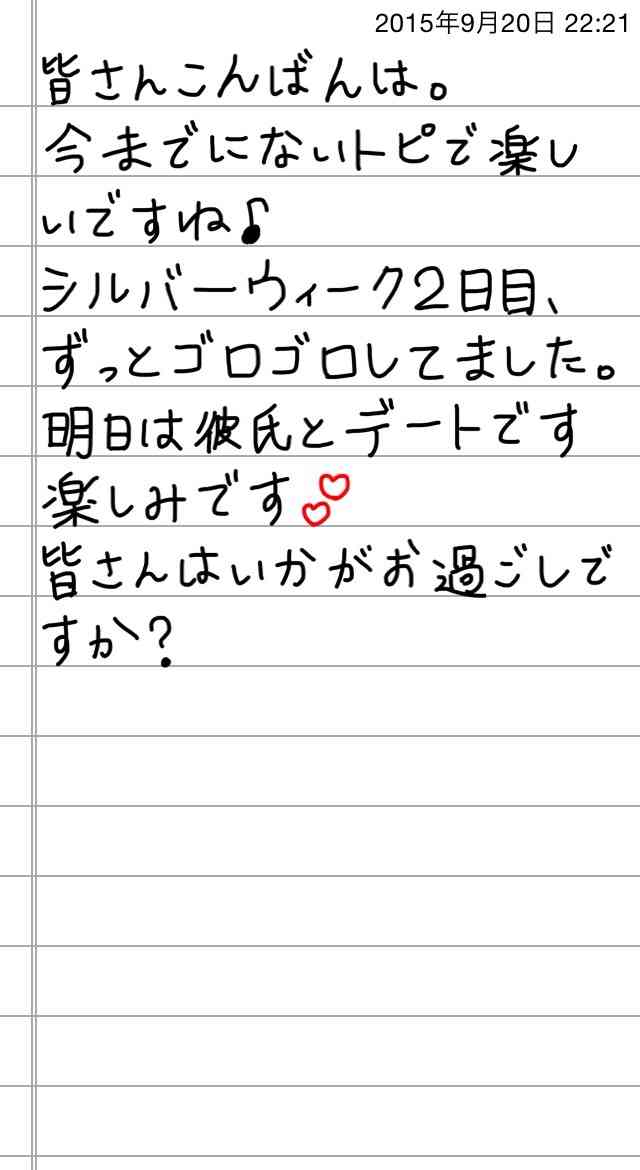 2015年9月20日 22:21
皆さんこんばんは。
今までにないトピで楽し
いですね♪
シルバーウィーク2日目、
ずっとゴロゴロしてました。
明日は彼氏とデートです
楽しみです💕
皆さんはいかがお過ごしで
すか?